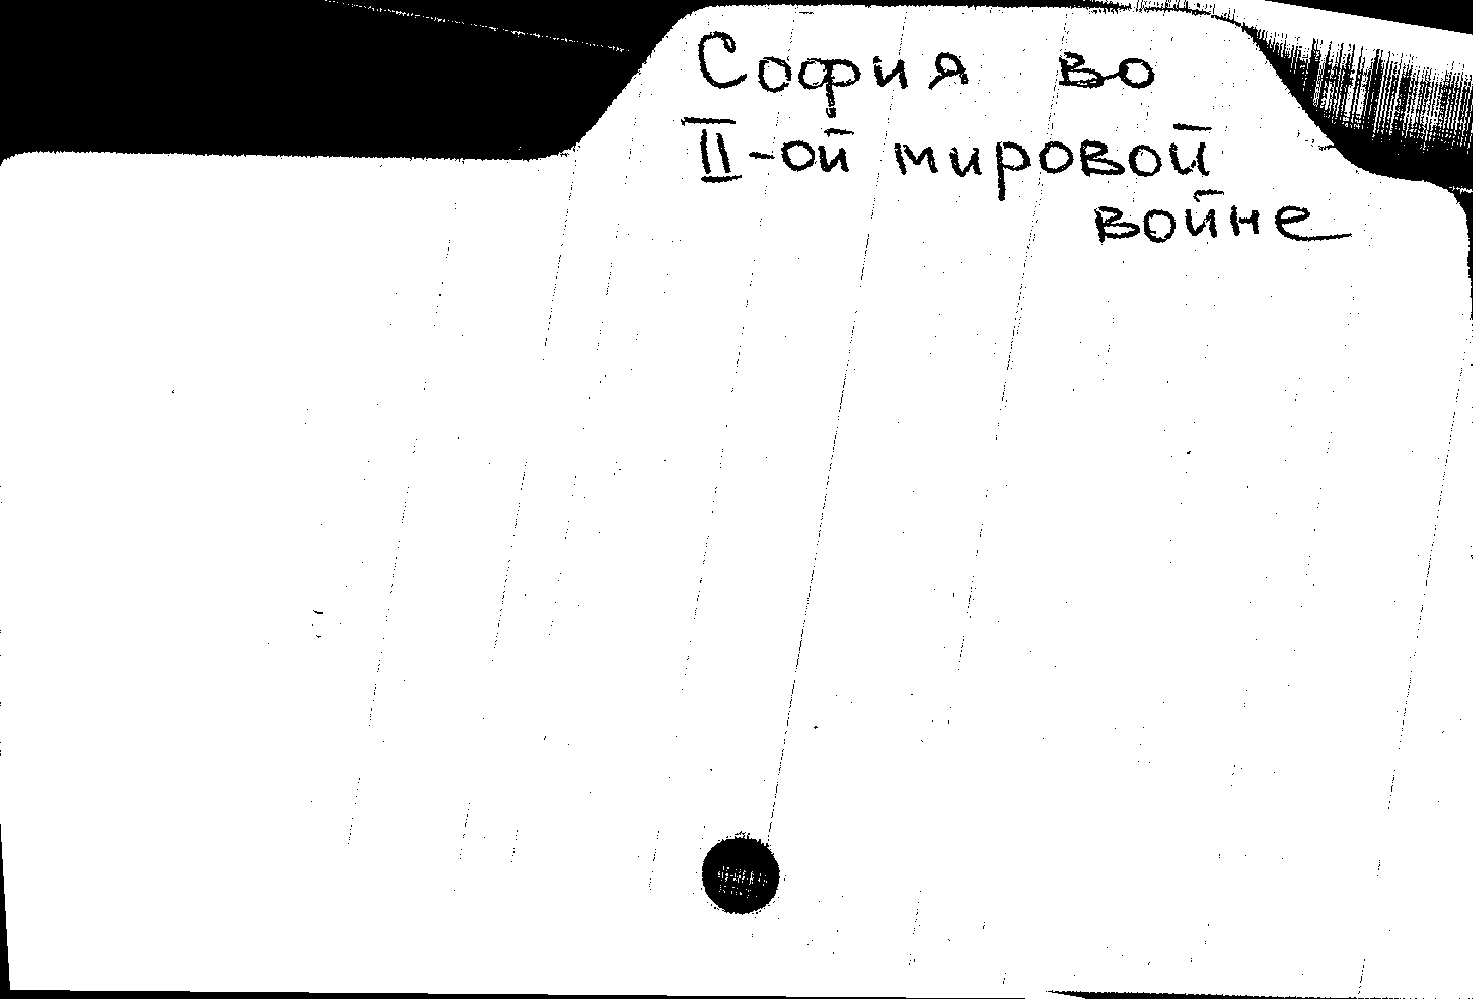 София во
II-ой мировой
войне